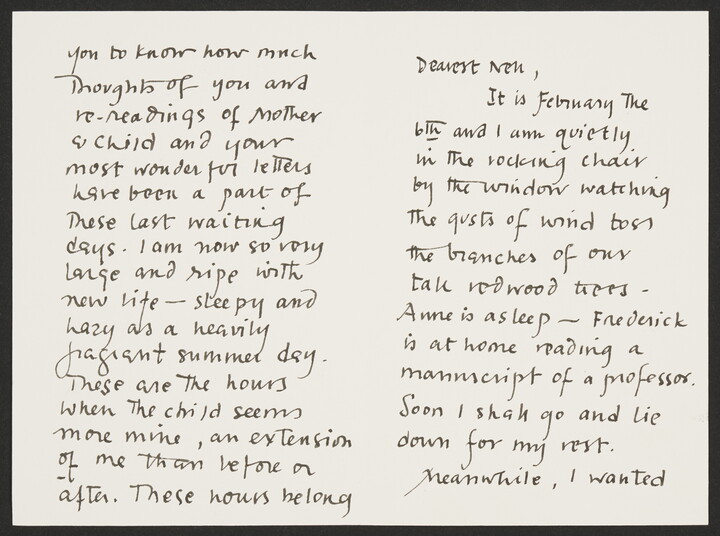 Dearest Nell,
It is February the
6th and I am quietly
in the rocking chair
by the window watching
the gusts of wind toss
the branches of our
tall redwood trees -
Anne is asleep — Frederick
is at home reading a
manuscript of a professor.
Soon I shall go and lie
down for my rest.
Meanwhile, I wanted
you to know how much
Thoughts of you and
re-readings of Mother
& Child and your
most wonderful letters
have been a part of
These last waiting
days. I am now so very
large and ripe with
new life — sleepy and
hazy as a heavily
fragrant summer day.
These are the hours
when the child seems
more mine, an extension
of me than before or
after. These hours belong